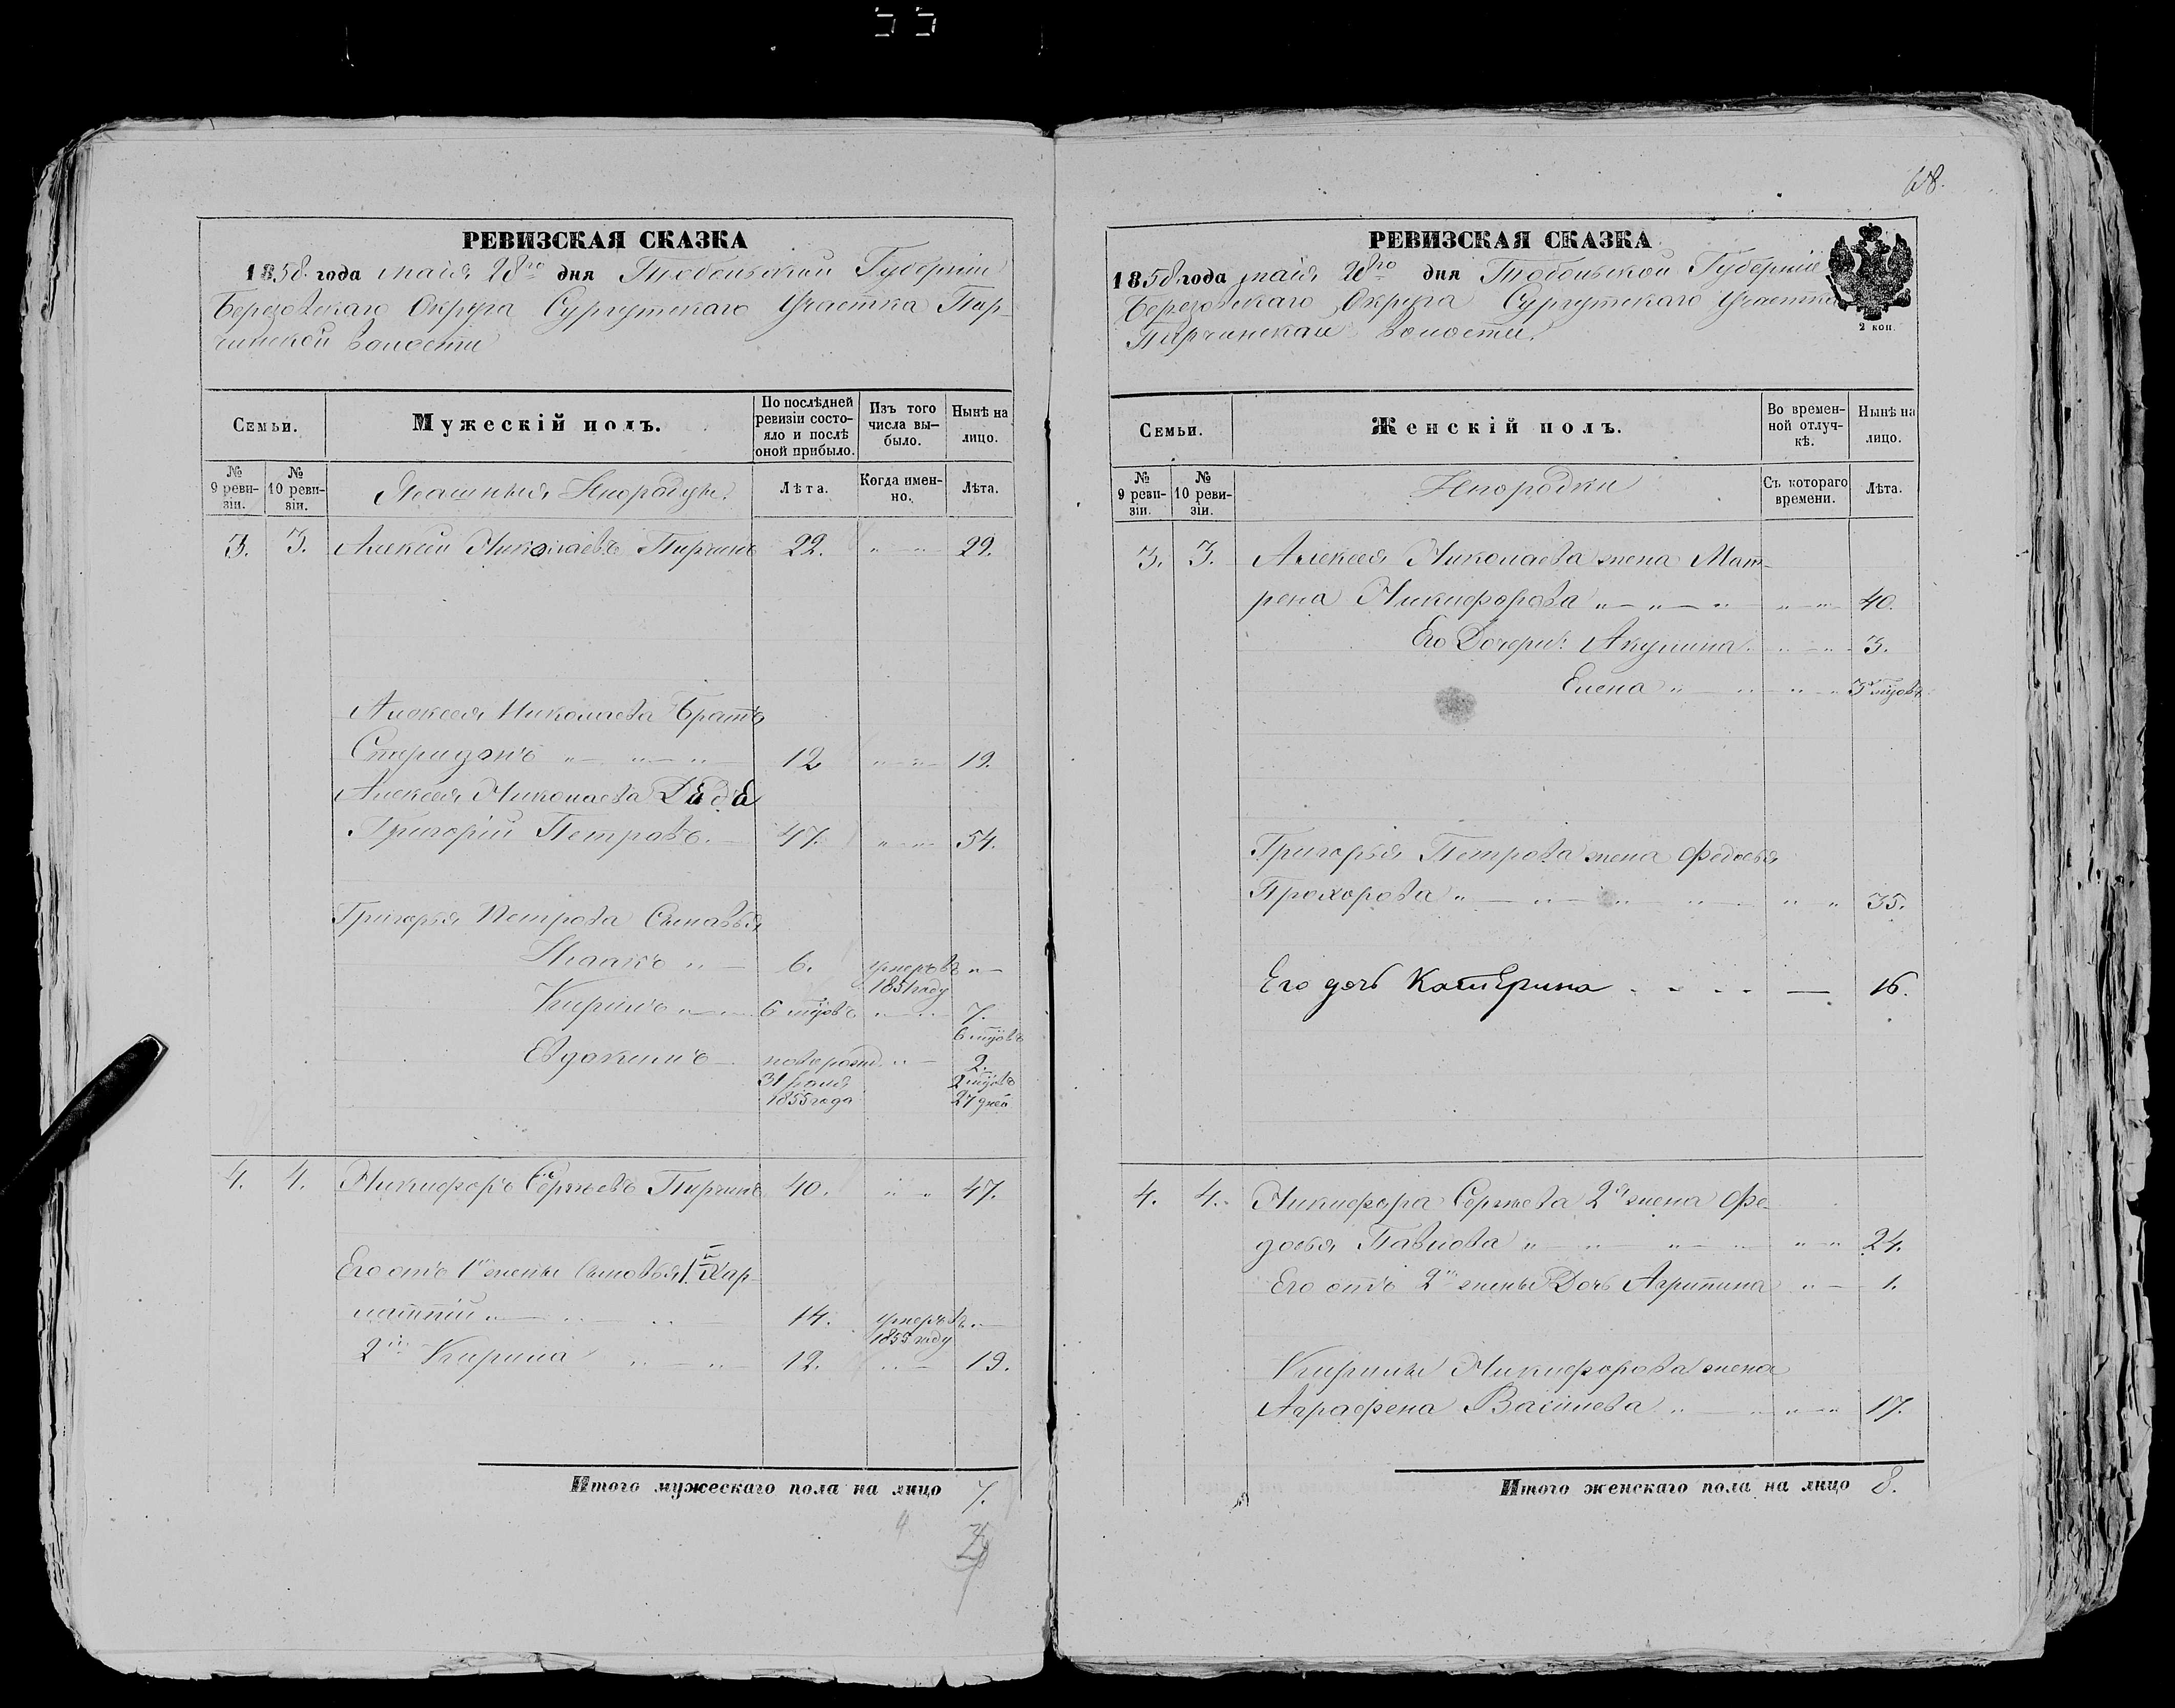 68.
РЕВИЗСКАЯ СКАЗКА
1858 года маія 28го дня Тобольской Губерніи
Березовскаго Округа Сургутскаго Участка Пир-
чинской волости
Семьи.
Мужескій полъ.
По послѣдней ревизіи состояло и послѣ оной прибыло.
Изъ того числа выбыло.
Нынѣ на лицо.
№ 9 ревизіи.
№ 10 ревизіи.
Ясашныя Инородцы.
Лѣта.
Когда именно.
Лѣта.
3. 3. Алексѣй Николаевъ Пирчинъ 22. " " 29.
Алексея Николаева Братъ
Спиридонъ " " " 12 " " 19.
Алексея Николаева Дядя
Григорій Петровъ. 47. " " 54.
Григорья Петрова Сыновья
Исаакъ " 6. умеръ въ "
1851 году
Кирилъ " 6 мцовъ " 7.
6 мцовъ
Евдокимъ новорожд. " 2.
31 2 мцовъ
1855 года 27 дней
4. 4. Никифоръ Сергѣевъ Пирчинъ 40. " " 47.
Его отъ 1й жены сыновья 1й Хар-
лампій " 14. умеръ въ "
1855 году
2й Кирила " " 12. " 19.
Итого мужескаго пола на лицо 7.
РЕВИЗСКАЯ СКАЗКА
1858 года маія 28го дня Тобольской Губерніи
Березовскаго Округа Сургутскаго Участка
Пирчинской волости.
2 коп.
Семьи.
Женскій полъ.
Во временной отлучкѣ.
Нынѣ на лицо.
№ 9 ревизіи.
№ 10 ревизіи.
Инородки
Съ котораго времени.
Лѣта.
3. 3. Алексея Николаева жена Мат-
рена Никифорова " " " " " 40.
Его Дочери: Акулина " " 3.
Елена " " " " 3 мцовъ
Григорья Петрова жена Федосья
Прохорова " " " " " " 35.
Его дочь Катерина 16.
4. 4. Никифора Сергѣева 2я жена Фе-
досья Павлова " " " " " 24.
Его отъ 2й жены Дочь Агрипина " 1.
Кирилы Никифорова жена
Аграфена Васильева " " " " 17.
Итого женскаго пола на лицо 8.